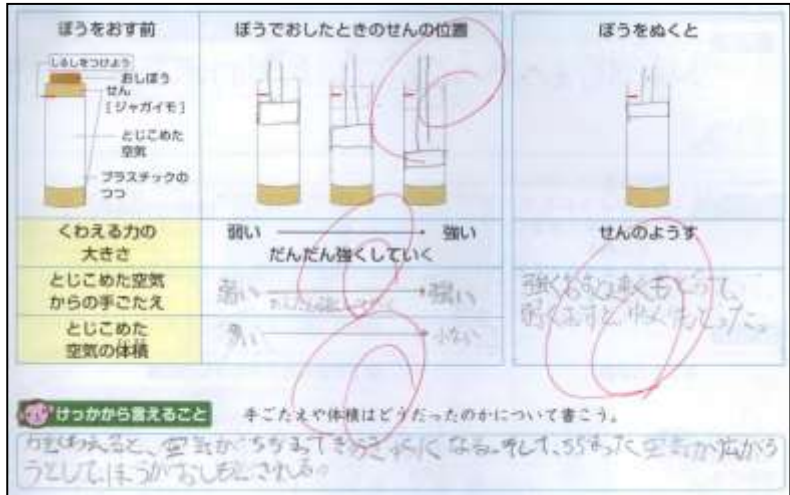 ぼうをおす前
ぼうでおしたときのせんの位置
ぼうをぬくと
しるしをつけよう
おしぼう
せん
[ジャガイモ]
とじこめた
空気
プラスチックの
つつ
くわえる力の
大きさ
弱い → 強い
だんだん強くしていく
せんのようす
とじこめた空気
からの手ごたえ
弱い → 強い
強くおすと速くもどって、
弱くおすと、ゆっくりもどった。
とじこめた
空気の体積
→ 小さい
けっかから言えること
手ごたえや体積はどうだったのかについて書こう。
くわえると、空気がちぢまって なる。そして、ちぢまった空気が広がろ
うとして、ぼうがおしもどされる。